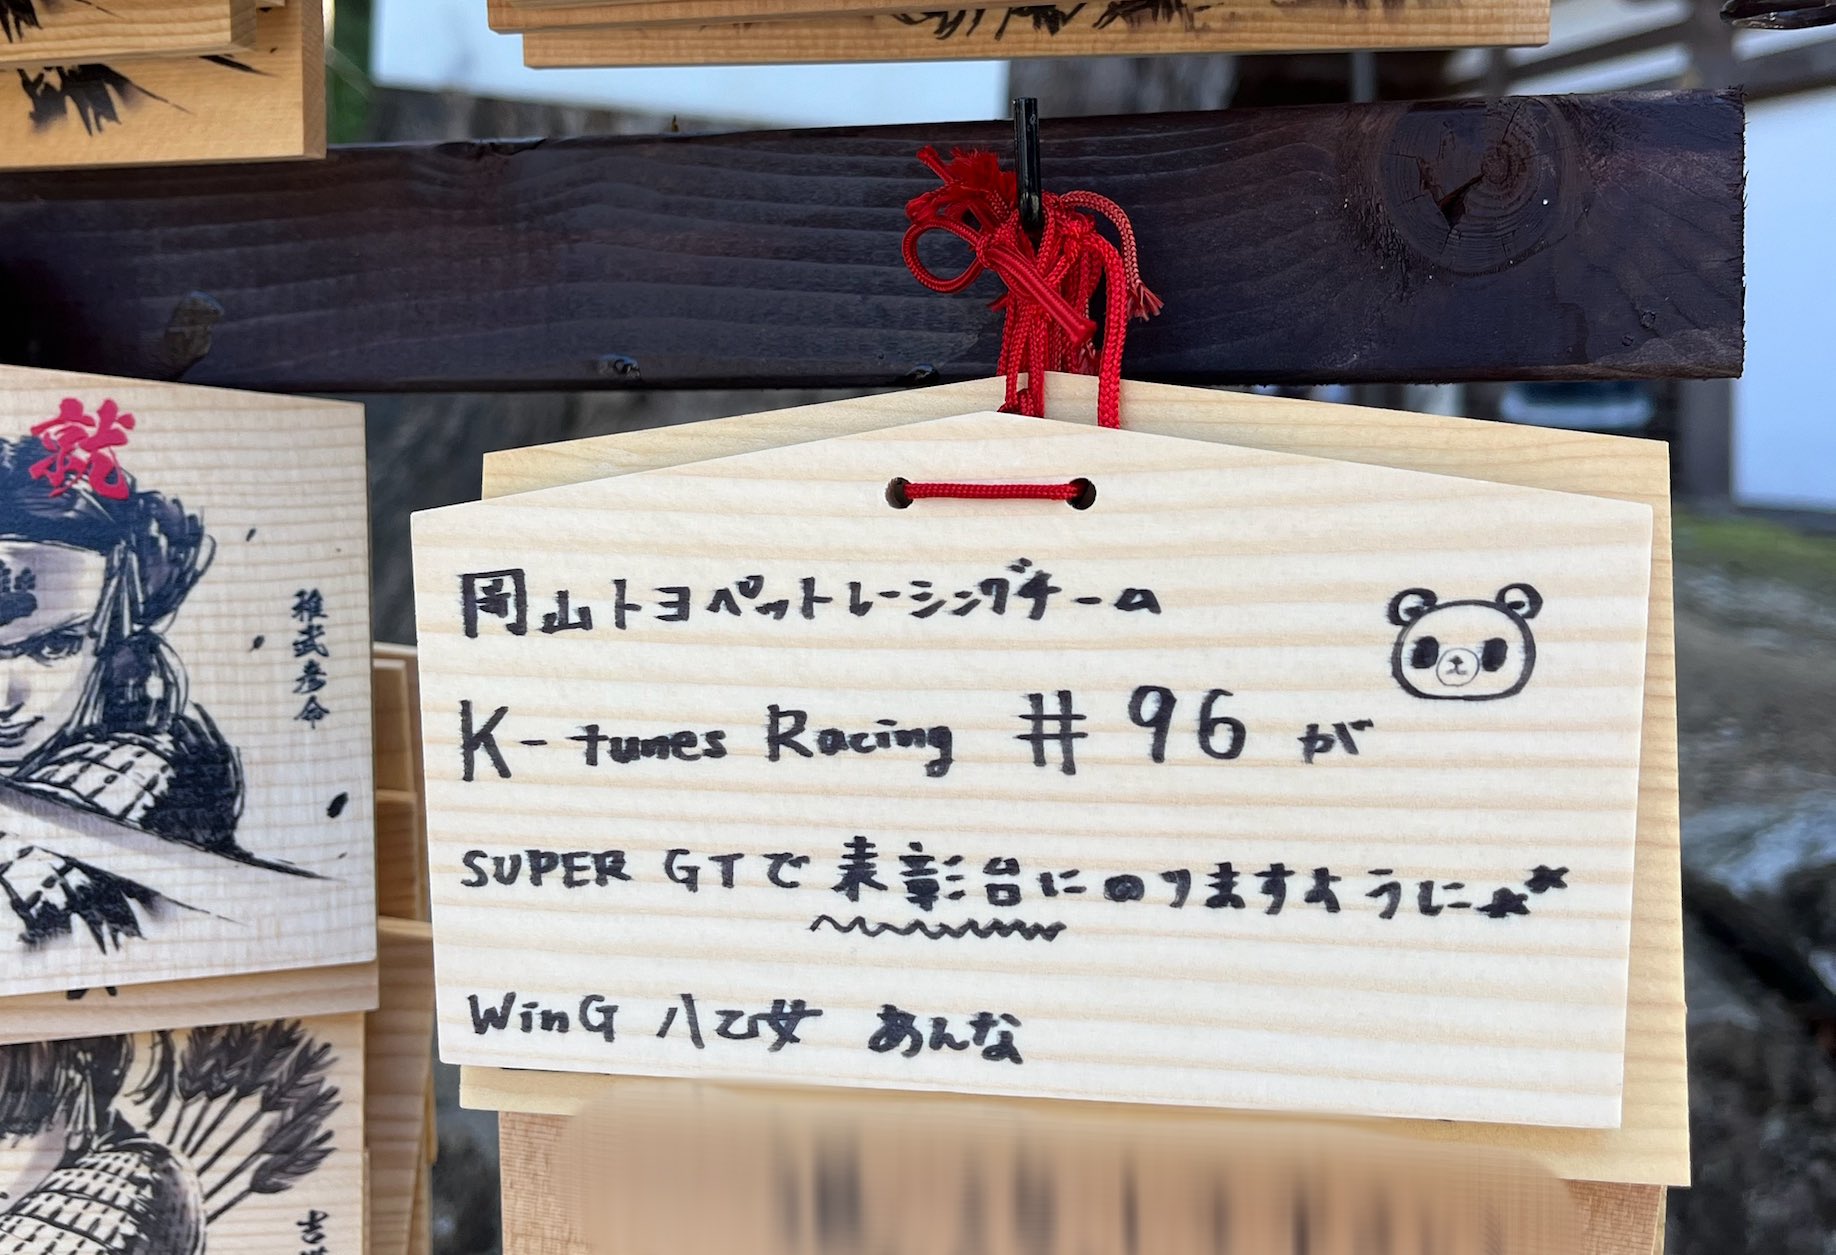 就
稚武彦命
岡山トヨペットレーシングチーム
K-tunes Racing #96 が
SUPER GTで表彰台にのりますように
WinG 八乙女 あんな